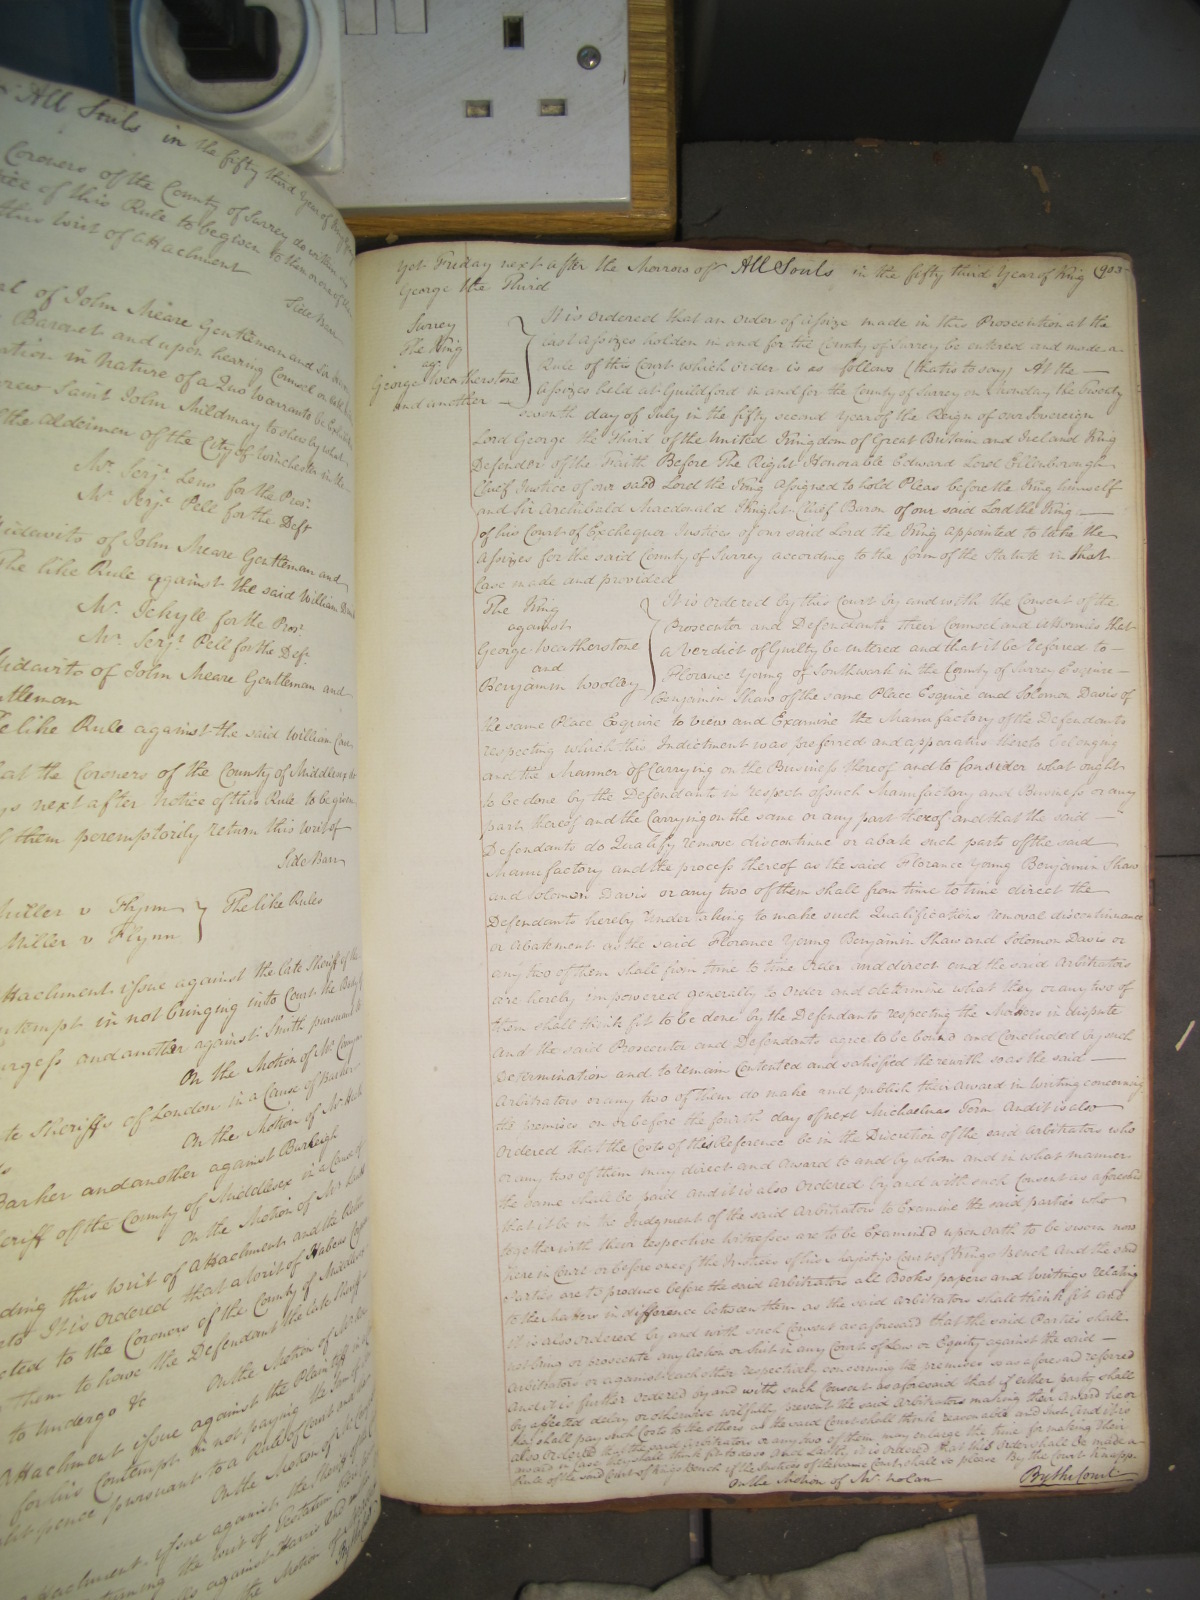 All Souls in the fifty third Year of King
Coroners of the County of Surrey do within six
of this Rule to be given to them or one of them
this writ of attachment
Side Barr
of John Meare Gentleman and Sir
Baronet and upon hearing Counsel on both
in Nature of a Quo Warranto be
Saint John Mildmay to shew by what
the Aldermen of the City of Winchester in the
Mr. Serjt. Lens for the Pros.r
Mr. Serjt. Pell for the Deft
of John Meare Gentleman and
The like Rule against the said William
Mr. Jekyll for the Pros.r
Mr. Serjt. Pell for the Def.t
of John Meare Gentleman and
like Rule against the said William
that the Coroners of the County of Middlesex do
next after notice of this Rule to be given
them peremptorily return this writ of
Side Barr
Miller v Flynn } The like Rules
Miller v Flynn
Attachment issue against the late Sheriff of the
in not bringing into Court the Body of
and another against Smith pursuant to
On the Motion of Mr
Sheriffs of London in a Cause of Barker
On the Motion of Mr
Barker and another against Burleigh
Sheriff of the County of Middlesex in a Cause of
On the Motion of Mr
this writ of attachment and the
It is Ordered that a Writ of Habeas Corpus
to the Coroners of the County of Middlesex
them to have the Defendant the late Sheriff
to undergo &c
On the Motion of Mr
Attachment issue against the Plaintiff
for his Contempt in not paying the Sum of
pence pursuant to a Rule of Court
On the Motion of Mr
issue against the Sheriff of
the writ of Testatum
against Harris
the Motion of
Yet Friday next after the Morrow of All Souls in the fifty third Year of King 903
George the Third
Surrey
The King
agt
George Weatherstone
and another
It is ordered that an order of Assize made in this Prosecution at the
last Assizes holden in and for the County of Surrey be entered and made a
Rule of this Court which order is as follows (that is to say) At the
Assizes held at Guildford in and for the County of Surrey on Monday the Twenty
seventh day of July in the fifty second Year of the Reign of our Sovereign
Lord George the Third of the United Kingdom of Great Britain and Ireland King
Defender of the Faith Before The Right Honorable Edward Lord Ellenborough
Chief Justice of our said Lord the King assigned to hold Pleas before the King himself
and Sir Archibald Macdonald Knight Chief Baron of our said Lord the King
of his Court of Exchequer Justices of our said Lord the King appointed to take the
Assizes for the said County of Surrey according to the form of the Statute in that
Case made and provided
The King
against
George Weatherstone
and
Benjamin Woolley
It is Ordered by this Court by and with the Consent of the
Prosecutor and Defendants their Counsel and Attornies that
a Verdict of Guilty be entered and that it be referred to
Florance Young of Southwark in the County of Surrey Esquire
Benjamin Shaw of the same Place Esquire and Solomon Davis of
the same Place Esquire to view and Examine the Manufactory of the Defendants
respecting which this Indictment was preferred and apparatus thereto belonging
and the Manner of Carrying on the Business thereof and to Consider what ought
to be done by the Defendants in respect of such Manufactory and Business or any
part thereof and the Carrying on the same or any part thereof and that the said
Defendants do Qualify remove discontinue or abate such parts of the said
Manufactory and the process thereof as the said Florance Young Benjamin Shaw
and Solomon Davis or any two of them shall from time to time direct the
Defendants hereby undertaking to make such Qualifications removal discontinuance
or abatement as the said Florance Young Benjamin Shaw and Solomon Davis or
any two of them shall from time to time Order and direct and the said Arbitrators
are hereby impowered generally to Order and determine what they or any two of
them shall think fit to be done by the Defendants respecting the Matters in dispute
and the said Prosecutor and Defendants agree to be bound and Concluded by such
Determination and to remain Contented and satisfied therewith so as the said
Arbitrators or any two of them do make and publish their award in writing concerning
the premises on or before the fourth day of next Michaelmas Term And it is also
Ordered that the Costs of this Reference be in the Discretion of the said Arbitrators who
or any two of them may direct and award to and by whom and in what manner
the same shall be paid and it is also Ordered by and with such Consent as aforesaid
that it be in the Judgment of the said Arbitrators to Examine the said parties who
together with their respective Witnesses are to be Examined upon oath to be sworn now
here in Court or before one of the Justices of his Majesty's Court of Kings Bench And the said
Parties are to produce before the said Arbitrators all Books papers and Writings relating
to the Matters in difference between them as the said Arbitrators shall think fit and
it is also Ordered by and with such Consent as aforesaid that the said Parties shall
not bring or prosecute any Action or Suit in any Court of Law or Equity against the said
Arbitrators or against each other respectively concerning the premises so as aforesaid referred
And it is further ordered by and with such Consent as aforesaid that if either party shall
by affected delay or otherwise wilfully prevent the said Arbitrators making their award he or
they shall pay such Costs to the others as the said Court shall think reasonable and just And it is
also Ordered that the said Arbitrators or any two of them may enlarge the time for making their
award in case they shall think fit so to do And Lastly it is ordered that this Order shall be made a
Rule of the said Court of Kings Bench if the Justices of the same Court shall so please By the Court
On the Motion of Mr. Nolan By the Court